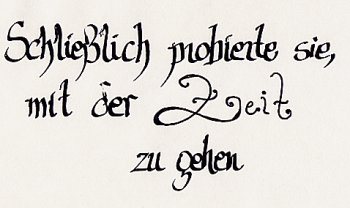 Schließlich probierte sie,
mit der Zeit
zu gehen